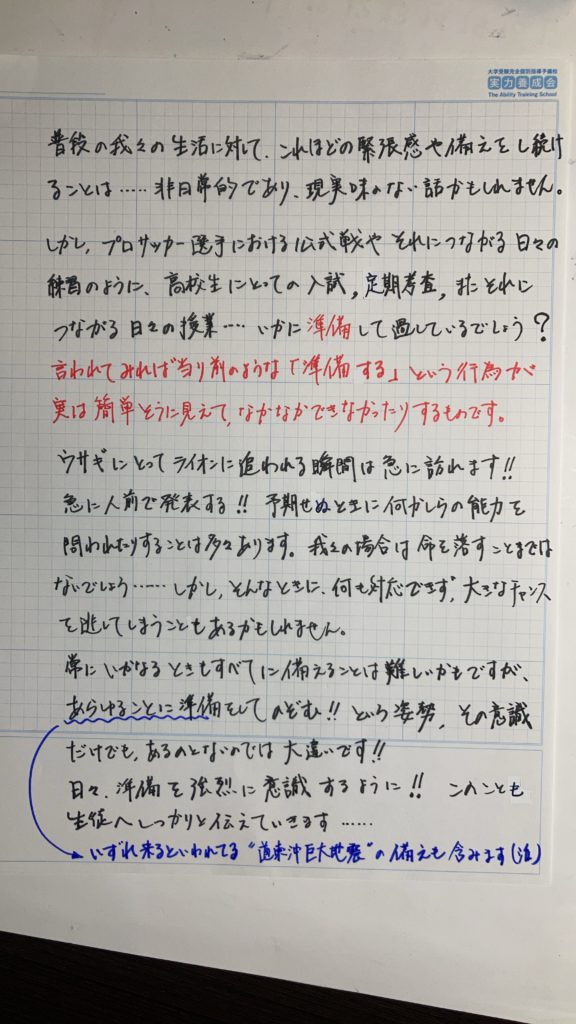 大学受験完全個別指導予備校
実力養成会
The Ability Training School
普段の我々の生活に対して、これほどの緊張感や備えをし続け
ることは……非日常的であり、現実味のない話かもしれません。
しかし、プロサッカー選手における公式戦や それにつながる日々の
練習のように、高校生にとっての入試,定期考査,またそれに
つながる日々の授業…… いかに準備して過しているでしょう?
言われてみれば当り前のような「準備する」という行為が
実は簡単そうに見えて、なかなかできなかったりするものです。
ウサギにとってライオンに追われる瞬間は急に訪れます!!
急に人前で発表する!! 予期せぬときに何かしらの能力を
問われたりすることは多々あります。我々の場合は命を落すことまでは
ないでしょう…… しかし、そんなときに、何も対応できず、大きなチャンス
を逃してしまうこともあるかもしれません。
常にいかなるときもすべてに備えることは難しいかもですが、
あらゆることに準備をしてのぞむ!! という姿勢、その意識
だけでも、あるのとないのでは大違いです!!
日々、準備を強烈に意識するように!! このことも
生徒へしっかりと伝えていきます……
いずれ来るといわれてる“道東沖巨大地震”の備えも含みます(注)